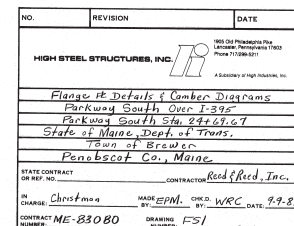 NO. REVISION DATE
1905 Old Philadelphia Pike
Lancaster, Pennsylvania 17603
Phone 717/299-5211
HIGH STEEL STRUCTURES, INC.
A Subsidiary of High Industries, Inc.
Flange & Details & Camber Diagrams
Parkway South Over I-395
Parkway South Sta. 24+69.67
State of Maine, Dept. of Trans.
Town of Brewer
Penobscot Co., Maine
STATE CONTRACT
OR REF. NO. CONTRACTOR Reed & Reed, Inc.
IN
CHARGE: Christman MADE BY: EPM. CHK.D. BY: WRC DATE: 9-9-8
CONTRACT NUMBER: ME-83080 DRAWING NUMBER: FS1